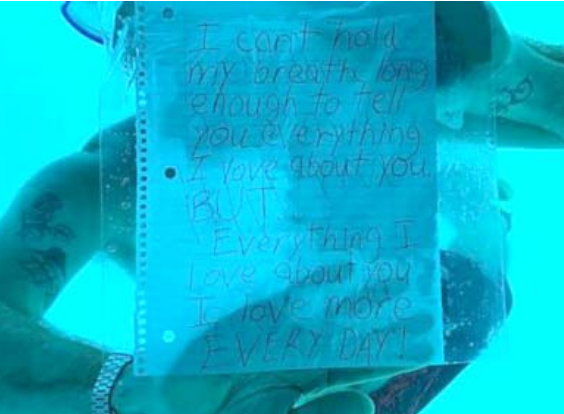 I can't hold
my breath long
enough to tell
you everything
I love about you.
BUT
Everything I
Love about you
I love more
EVERY DAY!